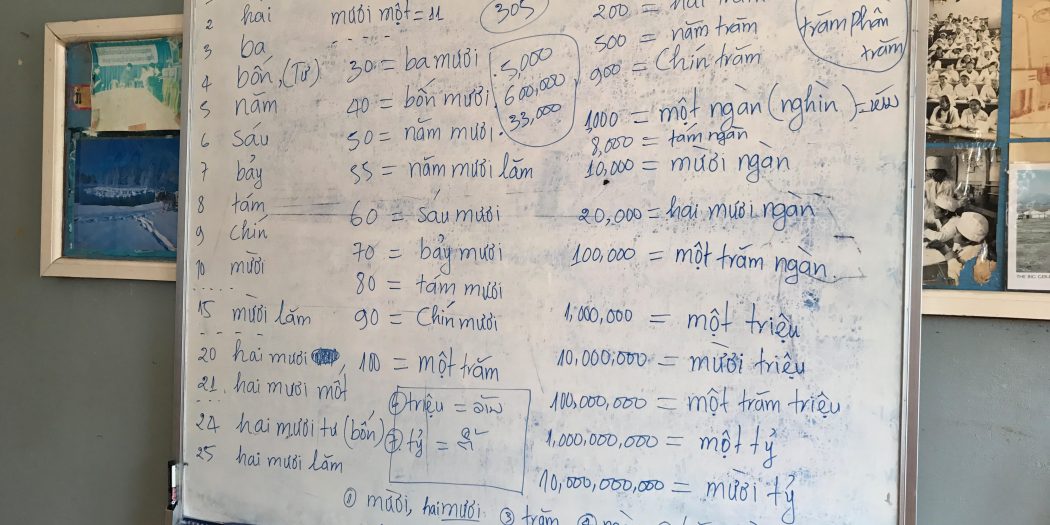 2 hai
3 ba
4 bốn, (Tư)
5 năm
6 sáu
7 bảy
8 tám
9 chín
10 mười
15 mười lăm
20 hai mươi
21 hai mươi mốt
24 hai mươi tư (bốn)
25 hai mươi lăm
mười một = 11
30 = ba mươi
40 = bốn mươi
50 = năm mươi
55 = năm mươi lăm
60 = sáu mươi
70 = bảy mươi
80 = tám mươi
90 = chín mươi
100 = một trăm
triệu =
tỷ =
① mười, hai mươi ③ trăm
305
5,000
600,000
33,000
200 = hai trăm
500 = năm trăm
900 = chín trăm
1,000 = một ngàn (nghìn) =
8,000 = tám ngàn
10,000 = mười ngàn
20,000 = hai mươi ngàn
100,000 = một trăm ngàn
1,000,000 = một triệu
10,000,000 = mười triệu
100,000,000 = một trăm triệu
1,000,000,000 = một tỷ
10,000,000,000 = mười tỷ
trăm phần
trăm